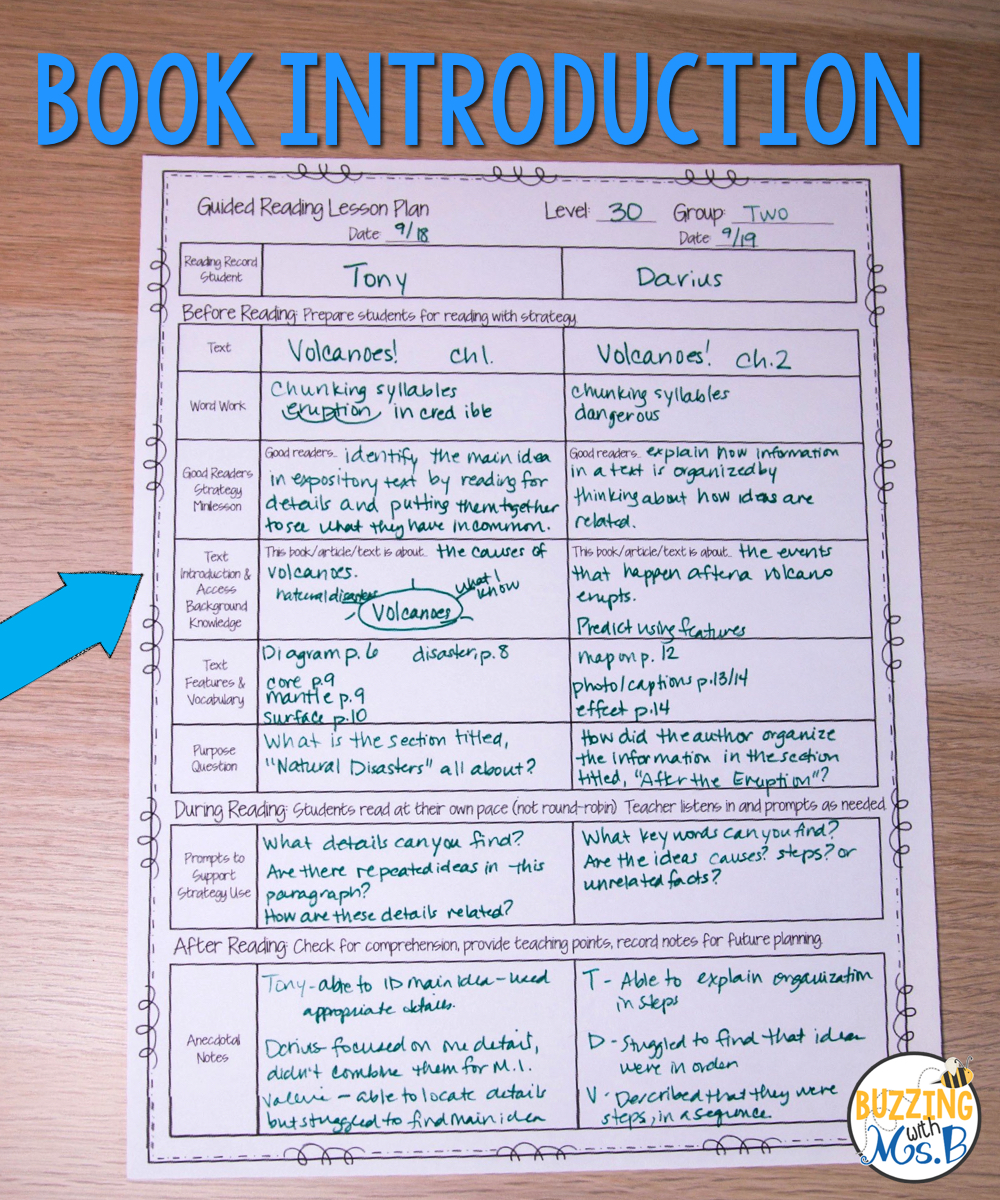 BOOK INTRODUCTION
Guided Reading Lesson Plan
Level: 30 Group: Two
Date: 9/18
Date: 9/19
Reading Record
Student
Tony
Darius
Before Reading: Prepare students for reading with strategy
Text
Volcanoes! ch 1.
Volcanoes! ch.2
Word Work
Chunking syllables
eruption in cred ible
chunking syllables
dangerous
Good Readers
Strategy
Minilesson
Good readers... identify the main idea
in expository text by reading for
details and putting them together
to see what they have in common.
Good readers... explain how information
in a text is organized by
thinking about how ideas are
related.
Text
Introduction &
Access
Background
Knowledge
This book/article/text is about... the causes of
volcanoes.
natural disasters
Volcanoes
what I
know
This book/article/text is about... the events
that happen after a volcano
erupts.
Predict using features
Text
Features &
Vocabulary
Diagram p. 6 disaster, p. 8
core p.9
mantle p.9
surface p.10
map on p. 12
photo/captions p.13/14
effect p.14
Purpose
Question
What is the section titled,
"Natural Disasters" all about?
How did the author organize
the information in the section
titled, "After the Eruption"?
During Reading: Students read at their own pace (not round-robin) Teacher listens in and prompts as needed
Prompts to
Support
Strategy Use
What details can you find?
Are there repeated ideas in this
paragraph?
How are these details related?
What key words can you find?
Are the ideas causes? steps? or
unrelated facts?
After Reading: Check for comprehension, provide teaching points, record notes for future planning.
Anecdotal
Notes
Tony - able to ID main idea - used
appropriate details.
Darius - focused on one detail,
didn't combine them for M.I.
Valerie - able to locate details
but struggled to find main idea
T - Able to explain organization
in steps
D - Struggled to find that ideas
were in order
V - Described that they were
steps, in a sequence.
BUZZING
with
Ms.B